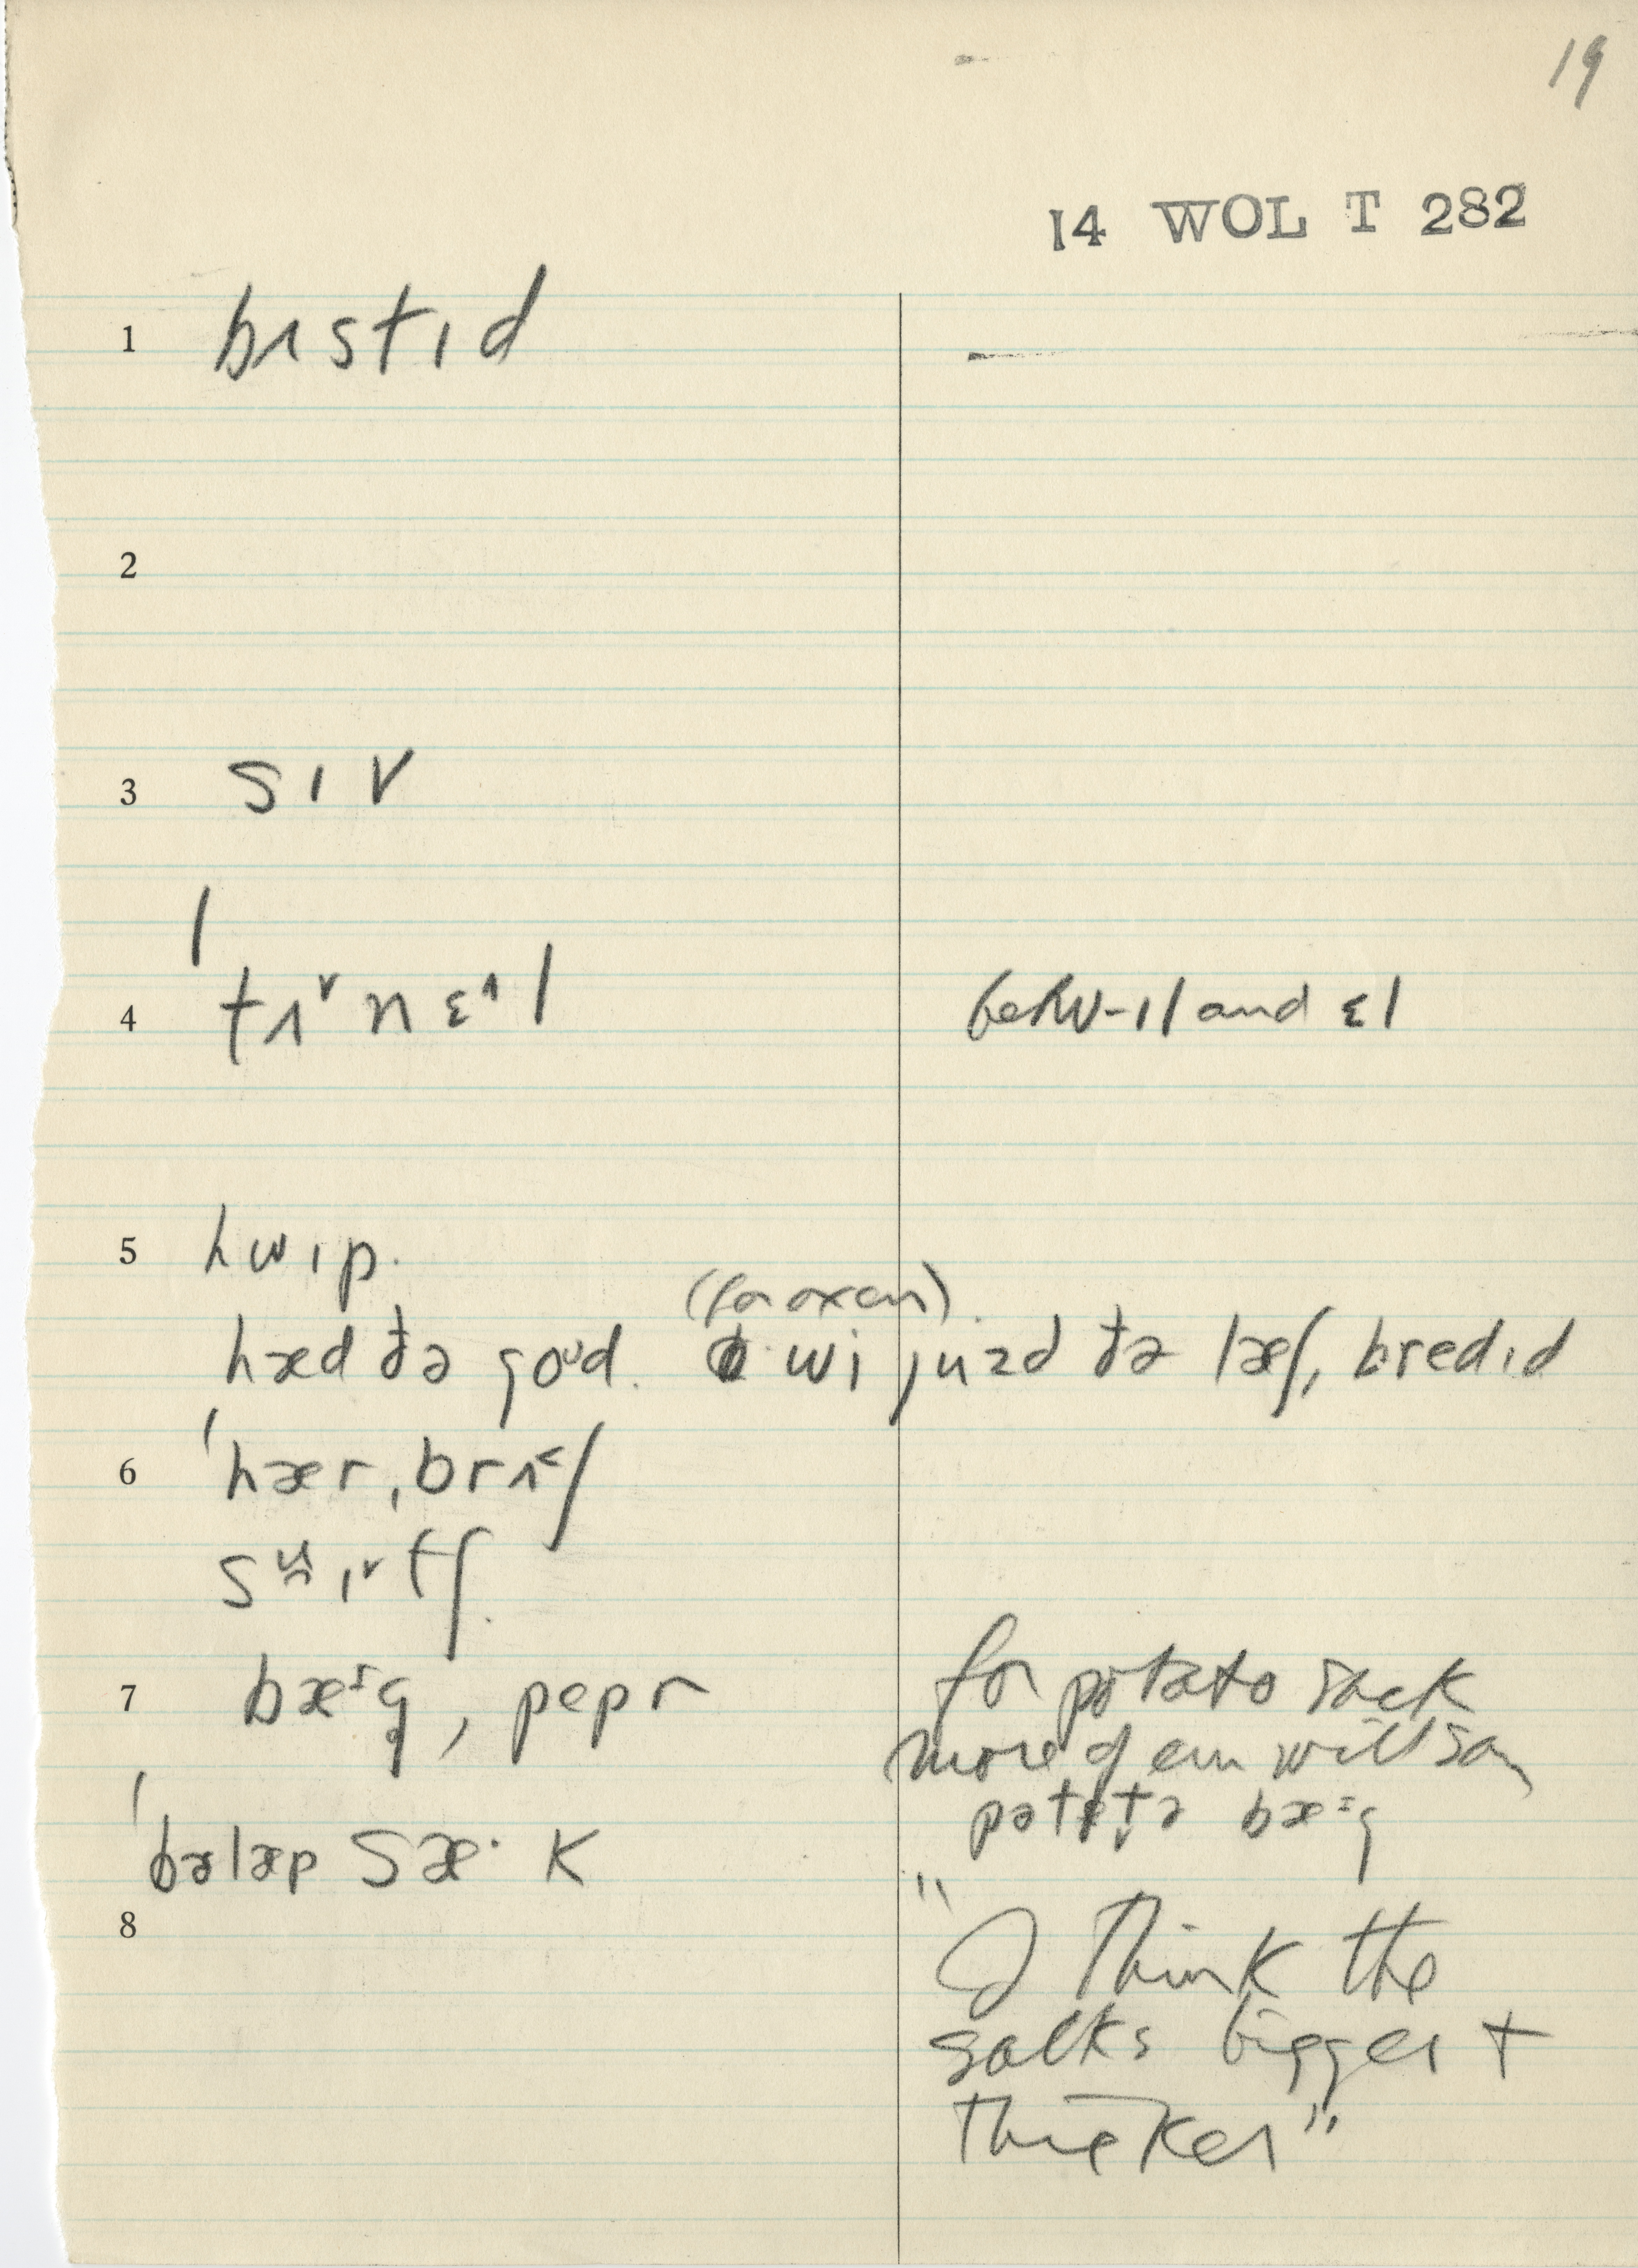 19
14 WOL T 282
1 bɪstɪd
2
3 sɪv
4 ˈtɪ˅nɛ˄l betw- ɪl and ɛl
5 hwɪp.
(for oxen)
hæd ðə goᴜd. wi juzd ðə læʃ, bredɪd
6 ˈhærˌbrɪ˂ʃ
sɪ˅tʃ.
7 bæɪg, pepr for potato sack
more of em will say
pətetə bæɪg
ˈbələp sæ·k
8 "I think the
sacks bigger +
thicker"